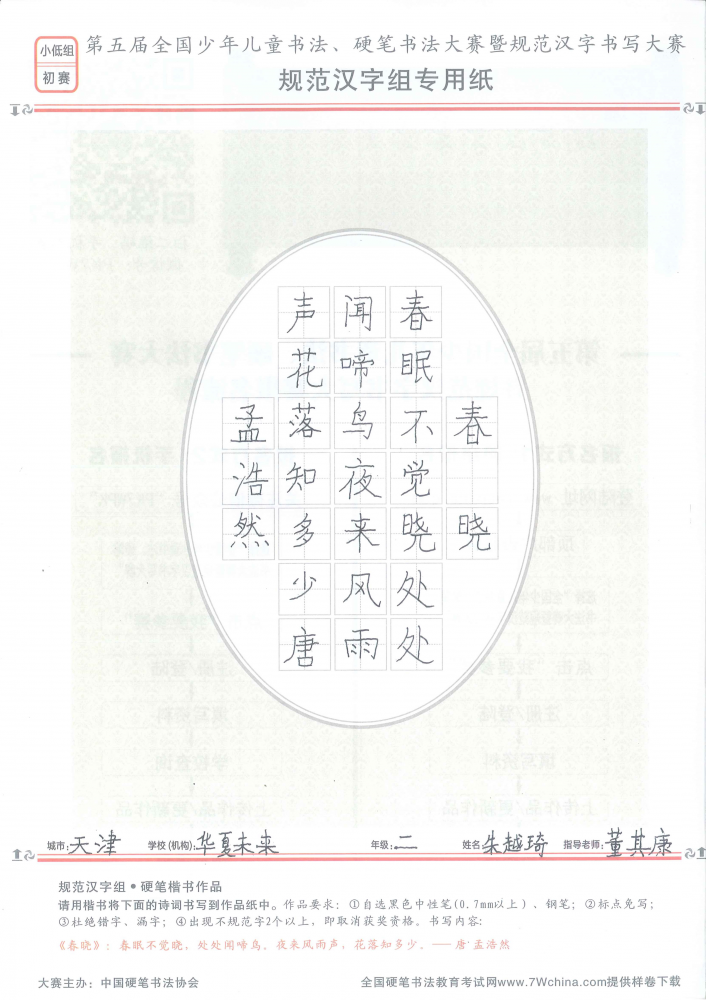 小低组
初赛
第五届全国少年儿童书法、硬笔书法大赛暨规范汉字书写大赛
规范汉字组专用纸
春晓
春眠不觉晓处处
闻啼鸟夜来风雨
声花落知多少唐
孟浩然
城市:天津 学校(机构):华夏未来 年级:二 姓名:朱越琦 指导老师:董其康
规范汉字组•硬笔楷书作品
请用楷书将下面的诗词书写到作品纸中。作品要求：①自选黑色中性笔(0.7mm以上)、钢笔；②标点免写；
③杜绝错字、漏字；④出现不规范字2个以上，即取消获奖资格。书写内容:
《春晓》：春眠不觉晓，处处闻啼鸟。夜来风雨声，花落知多少。——唐·孟浩然
大赛主办：中国硬笔书法协会 全国硬笔书法教育考试网www.7Wchina.com提供样卷下载